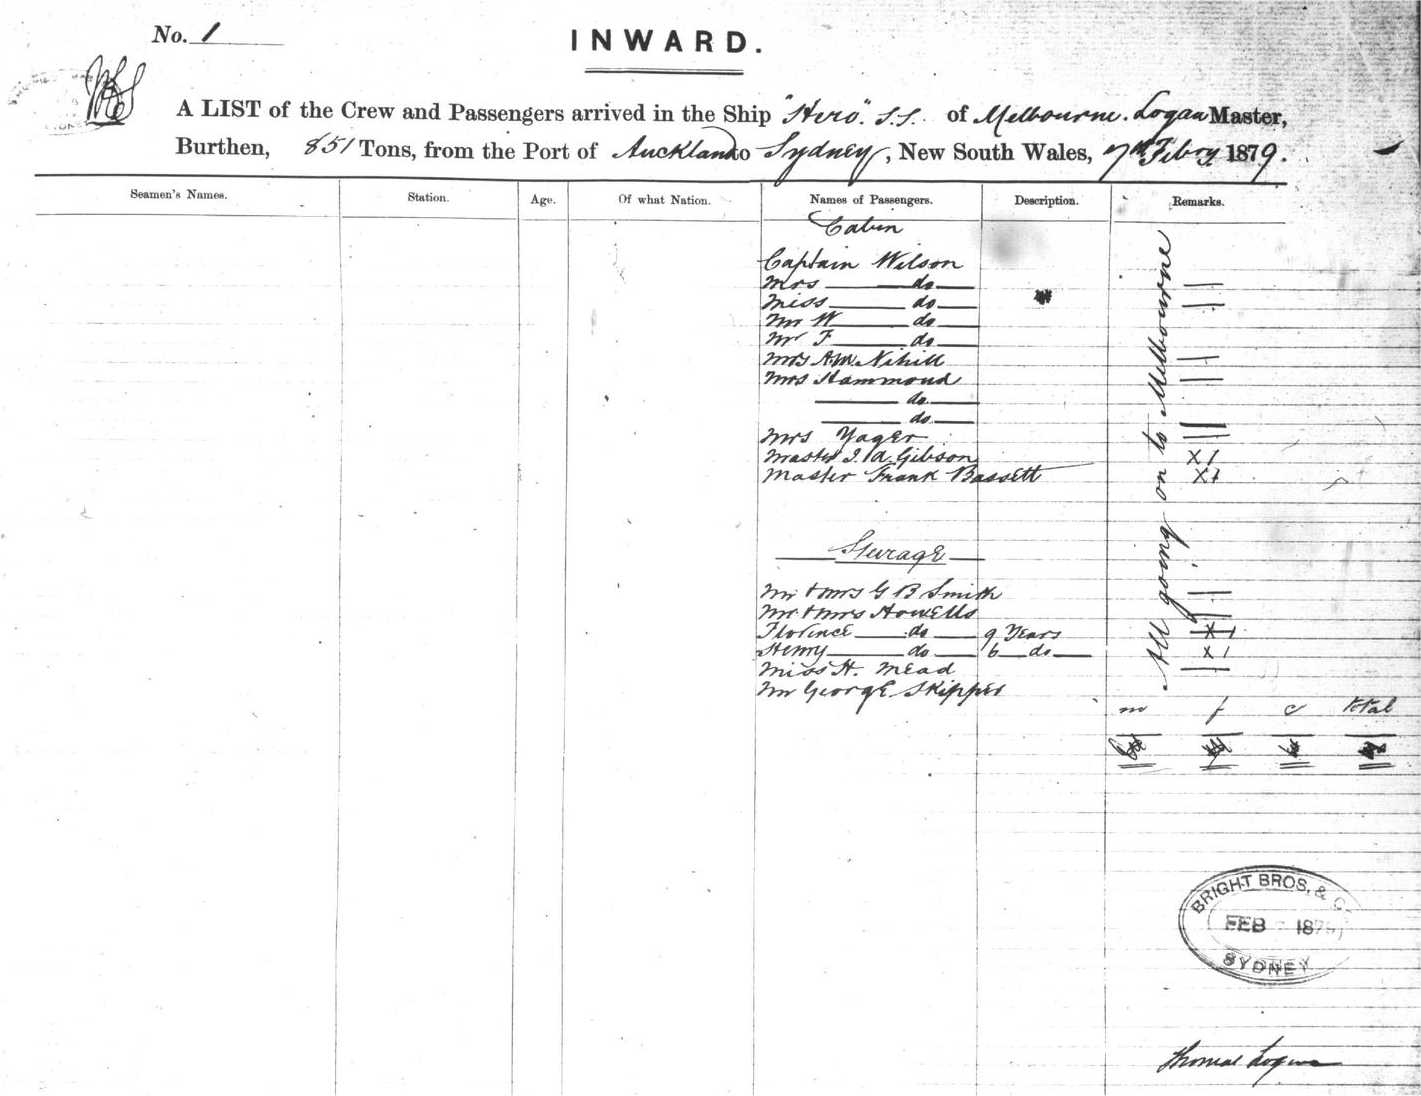 No. 1
INWARD.
A LIST of the Crew and Passengers arrived in the Ship "Hero". S.S. of Melbourne. Logan Master,
Burthen, 851 Tons, from the Port of Auckland to Sydney, New South Wales, 7th Febry 1879.
Seamen's Names. Station. Age. Of what Nation. Names of Passengers. Description. Remarks.
Cabin
Captain Wilson
Mrs do
Miss do
Mr W do
Mr F do
Mrs A.M. Nihill
Mrs Hammond
do
do
Mrs Yager
Master J. A. Gibson X 1
Master Frank Bassett X 1
All going on to Melbourne
Steerage
Mr & Mrs G B Smith
Mr & Mrs Howells
Florence do 9 Years X 1
Henry do 6 do X 1
Miss H. Mead
Mr George Skipper
m f c total
BRIGHT BROS, & C
FEB 187
SYDNEY
Thomas Logan